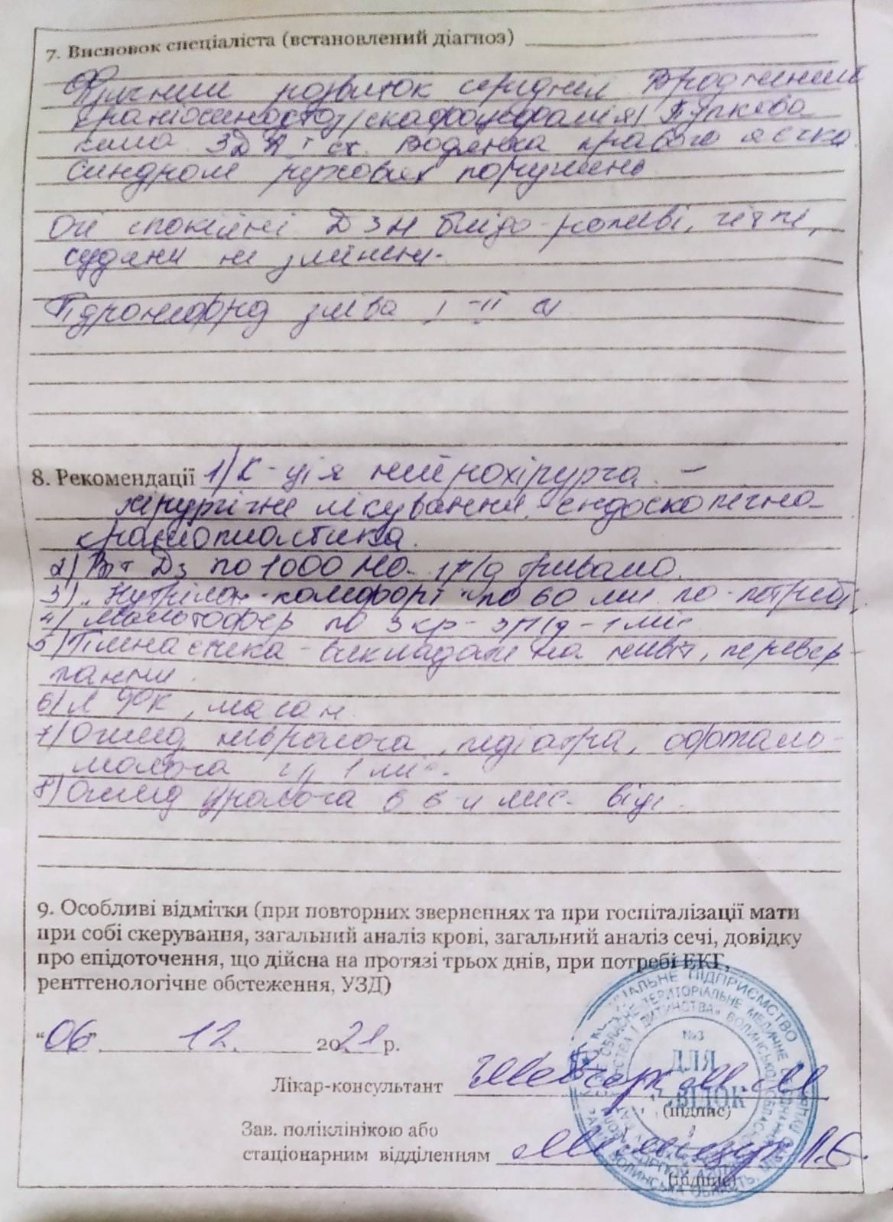 7. Висновок спеціаліста (встановлений діагноз)
Фізичний розвиток середній. Вроджений
краніосиностоз /скафоцефалія/ Пупкова
кила ЗДА I ст. Водянка правого яєчка
Синдром рухових порушень
Очі спокійні ДЗН блідо-рожеві, чіткі,
судини не змінені.
Гідронефроз зліва I-II ст
8. Рекомендації 1) К-ція нейрохірурга -
хірургічне лікування, ендоскопічна
краніопластика.
2) Віт Д3 по 1000 МО 1р/д тривало.
3) "Нутрілон комфорт" по 60 мл по потребі,
4) Мальтофер по 3 кр - 3р/д - 1 міс
5) Гімнастика - викладати на живіт, перевер-
тання.
6) ЛФК, масаж
7) Огляд невролога, педіатра, офтальмо-
молога 1 міс.
8) Огляд уролога в 6-и міс. віці.
9. Особливі відмітки (при повторних зверненнях та при госпіталізації мати
при собі скерування, загальний аналіз крові, загальний аналіз сечі, довідку
про епідоточення, що дійсна на протязі трьох днів, при потребі ЕКГ,
рентгенологічне обстеження, УЗД)
"06" 12. 2021 р.
Лікар-консультант
(підпис)
Зав. поліклінікою або
стаціонарним відділенням
(підпис)
№3
ДЛЯ
ДОВІДОК